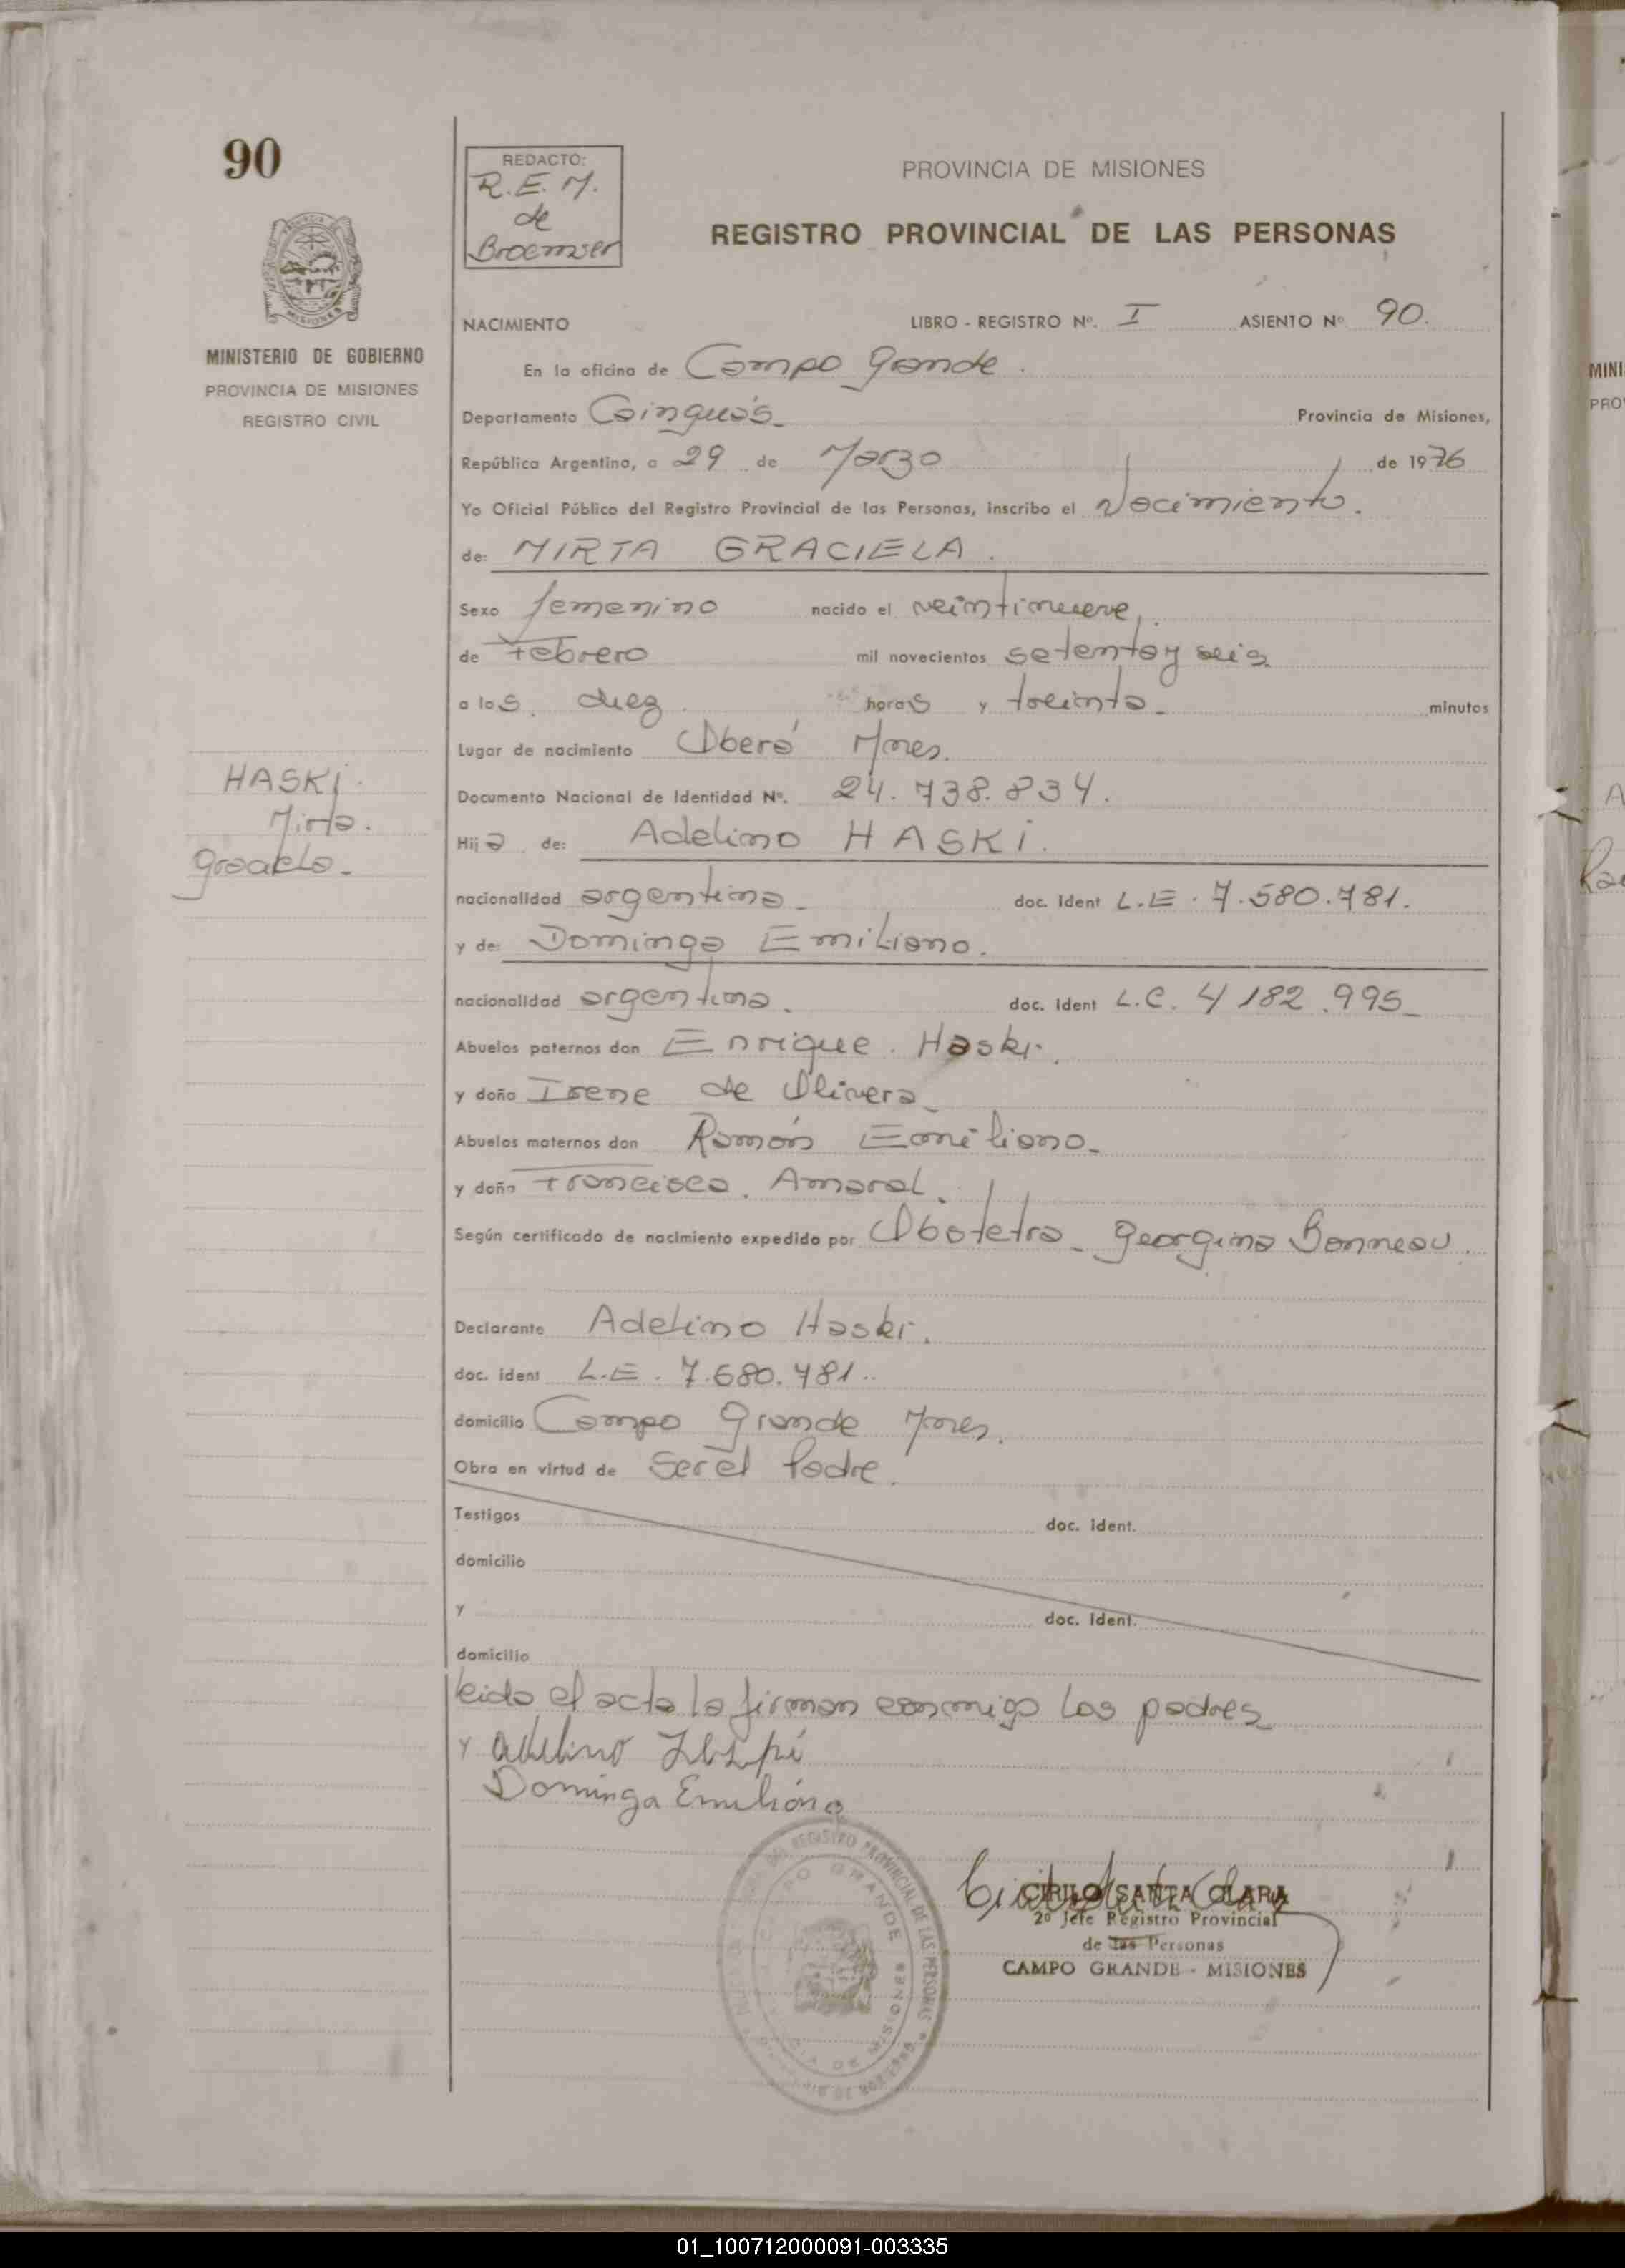 90
REDACTO:
R.E.M.
de
Broemser
PROVINCIA DE MISIONES
REGISTRO PROVINCIAL DE LAS PERSONAS
MINISTERIO DE GOBIERNO
PROVINCIA DE MISIONES
REGISTRO CIVIL
NACIMIENTO LIBRO - REGISTRO Nº. I ASIENTO Nº 90.
En la oficina de Campo Grande.
Departamento Cainguás Provincia de Misiones,
República Argentina, a 29 de Marzo de 1976
Yo Oficial Público del Registro Provincial de las Personas, inscribo el Nacimiento.
de: MIRTA GRACIELA.
Sexo femenino nacido el veintinueve,
de Febrero mil novecientos setenta y seis
a las diez horas y treinta minutos
Lugar de nacimiento Oberá Mnes.
Documento Nacional de Identidad Nº. 24.738.834.
HASKI.
Mirta.
Graciela.
Hija de: Adelino HASKI.
nacionalidad argentina doc. ident L.E. 7.580.781.
y de: Dominga Emiliano.
nacionalidad argentina. doc. ident L.C. 4 182.995
Abuelos paternos don Enrique. Haski.
y doña Irene de Olivera
Abuelos maternos don Ramón Emiliano.
y doña Francisca. Amaral.
Según certificado de nacimiento expedido por Obstetra Georgina Bonneau.
Declarante Adelino Haski.
doc. ident L.E. 7.680.481.
domicilio Campo Grande Mnes.
Obra en virtud de Ser el Padre.
Testigos doc. ident.
domicilio
y doc. ident.
domicilio
leida el acta la firman conmigo los padres
y Adelino
Dominga Emiliano
REGISTRO PROVINCIAL DE LAS PERSONAS
CAMPO GRANDE
MISIONES
CIRILO SANTA CLARA
2º Jefe Registro Provincial
de las Personas
CAMPO GRANDE - MISIONES
01_100712000091-003335